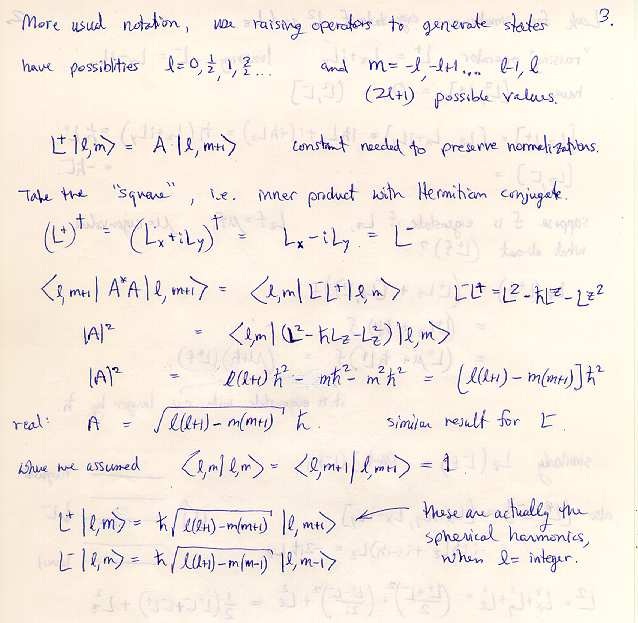 More usual notation, use raising operators to generate states 3.
have possiblities l = 0, 1/2, 1, 3/2 ... and m = -l, -l+1, ... l-1, l
(2l+1) possible values.
L⁺ |l,m> = A |l, m+1> constant needed to preserve normalizations.
Take the "square", i.e. inner product with Hermitian conjugate.
(L⁺)† = (Lx + iLy)† = Lx - iLy = L⁻
<l,m+1| A*A |l, m+1> = <l,m| L⁻L⁺ |l,m> L⁻L⁺ = L² - ħLz - Lz²
|A|² = <l,m| (L² - ħLz - Lz²) |l,m>
|A|² = l(l+1)ħ² - mħ² - m²ħ² = [l(l+1) - m(m+1)]ħ²
real: A = √(l(l+1) - m(m+1)) ħ. similar result for L⁻.
where we assumed <l,m|l,m> = <l,m+1|l,m+1> = 1.
L⁺ |l,m> = ħ √(l(l+1) - m(m+1)) |l, m+1> ← these are actually the
spherical harmonics,
L⁻ |l,m> = ħ √(l(l+1) - m(m-1)) |l, m-1> when l = integer.